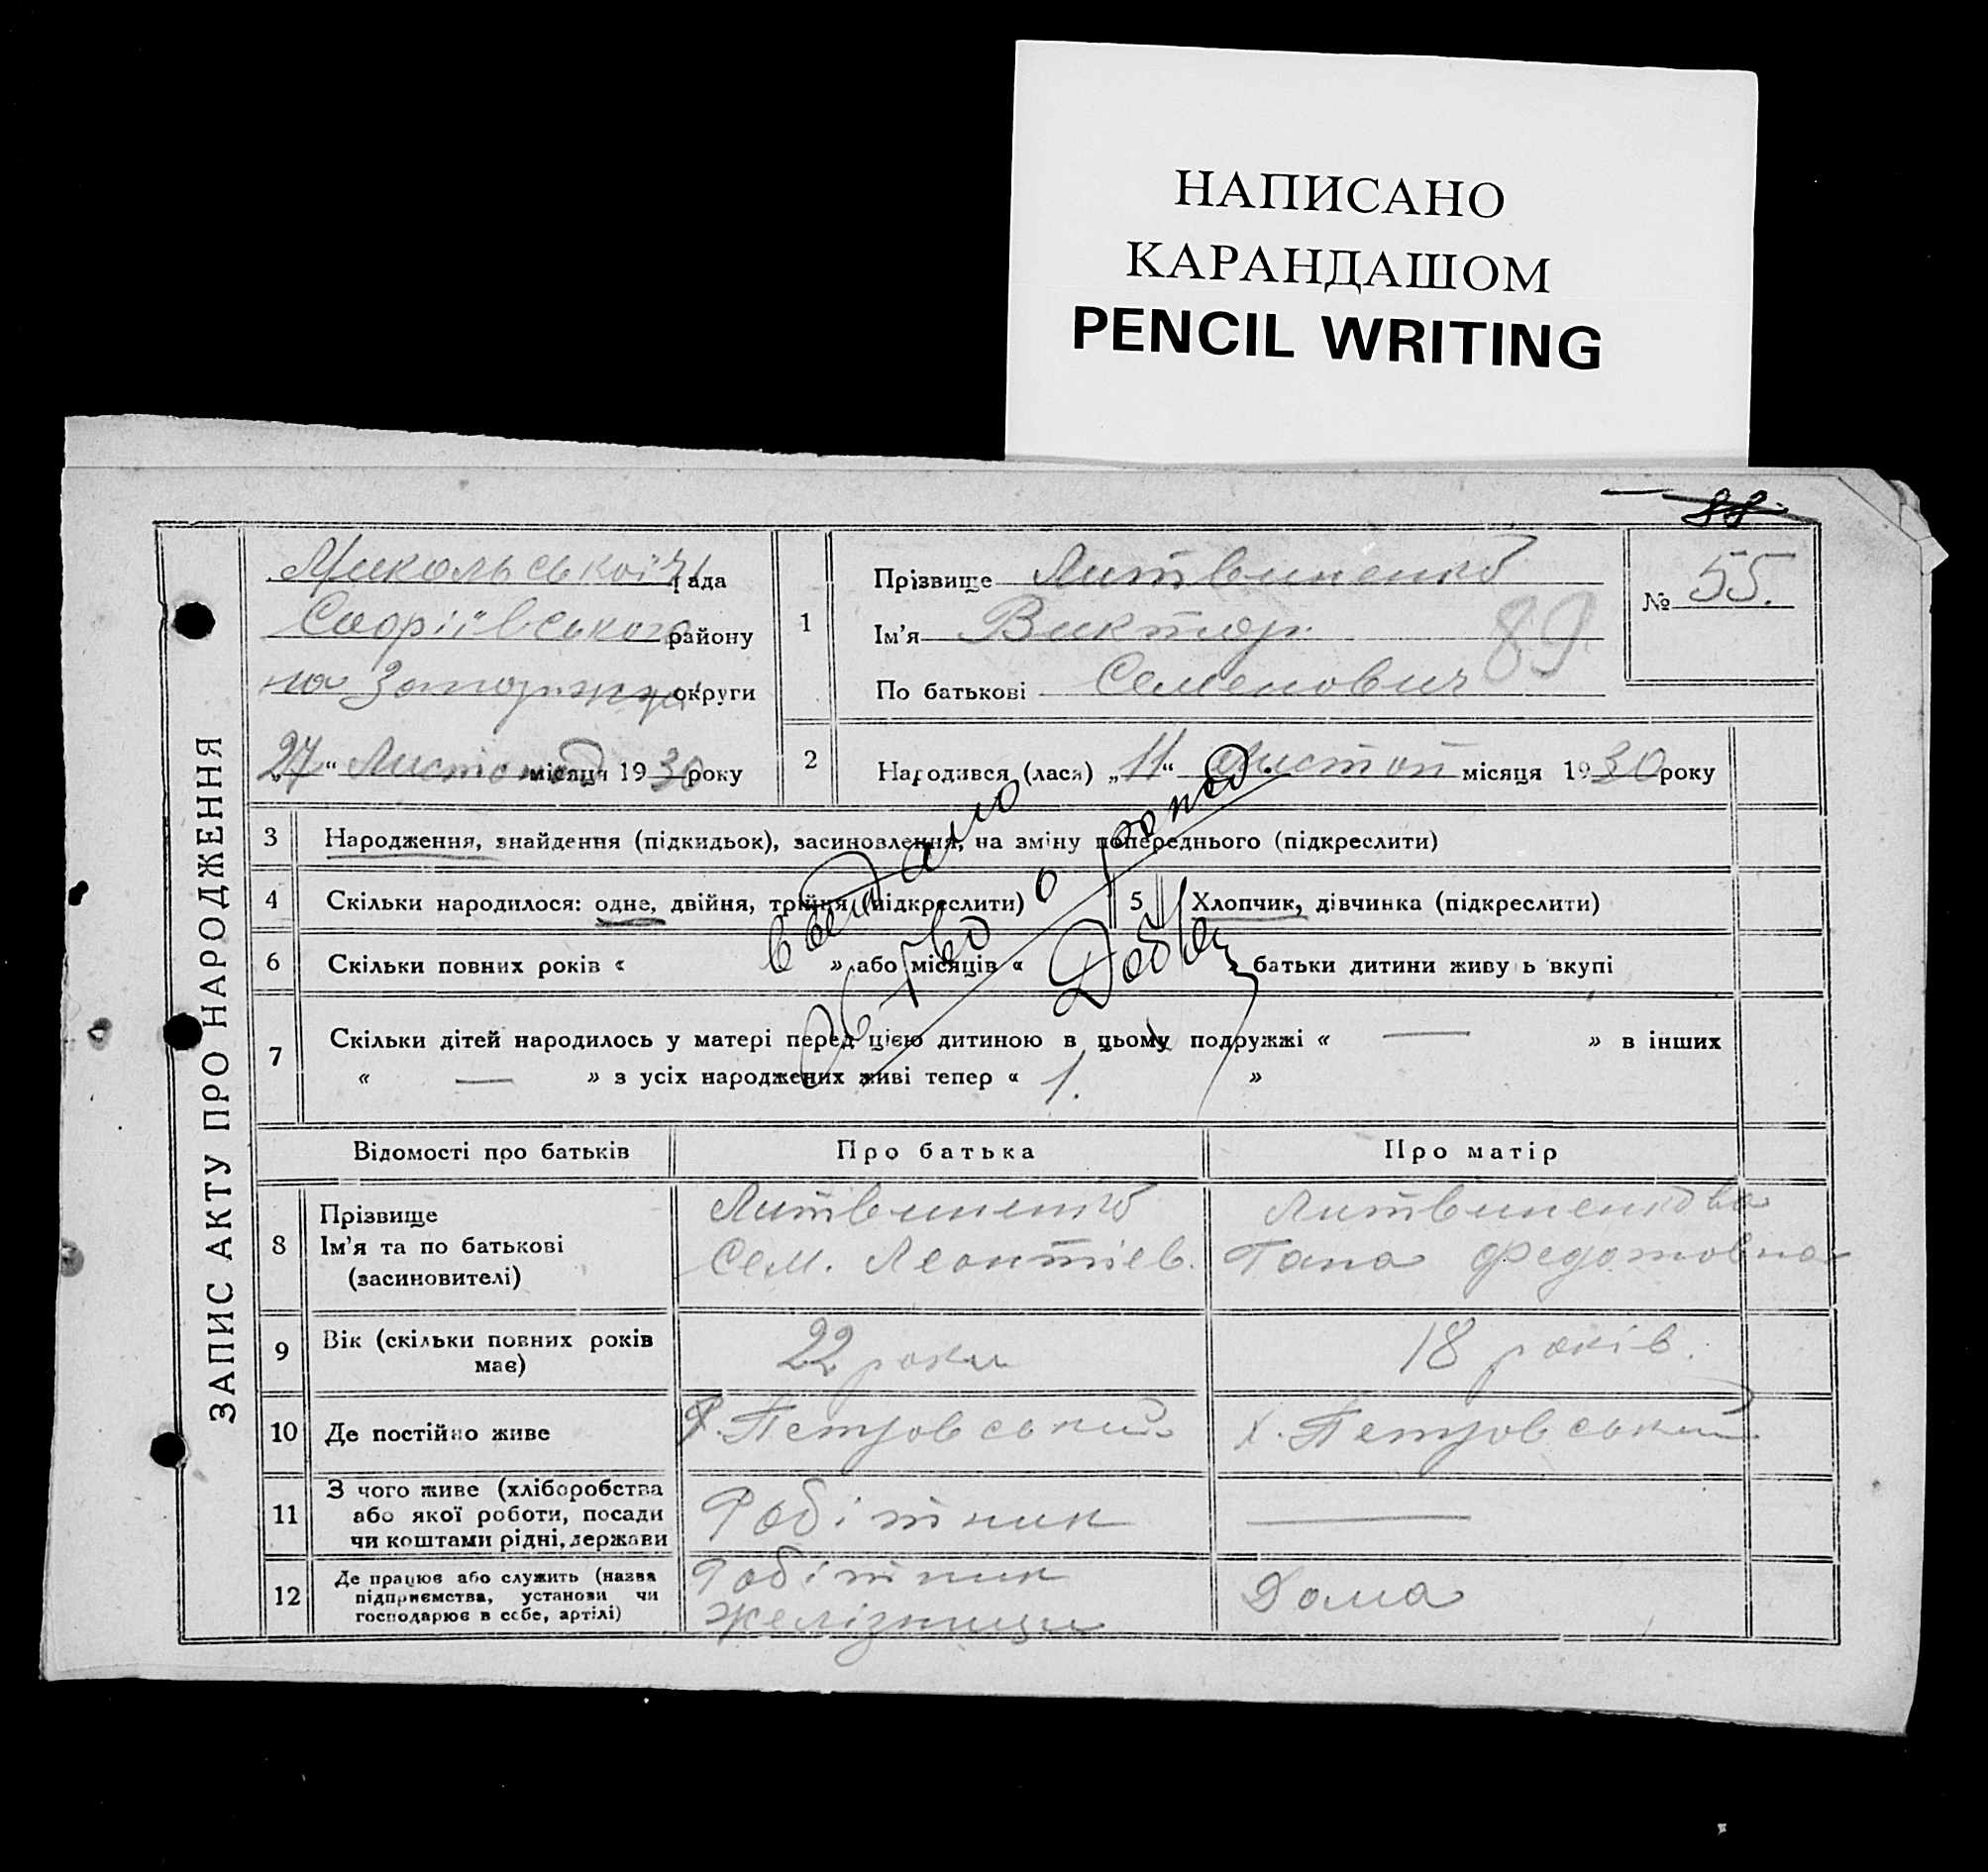 НАПИСАНО
КАРАНДАШОМ
PENCIL WRITING
88
ЗАПИС АКТУ ПРО НАРОДЖЕННЯ
Микольської рада
Софіївського району
на Запоріжжі округи
27 " Листопад місяця 1930 року
1
Прізвище Литвиненко
Ім'я Виктор
По батькові Семенович
№ 55.
89
2
Народився (лася) „11“ Листоп місяця 1930 року
3 Народження, знайдення (підкидьок), засиновлення, на зміну попереднього (підкреслити)
4 Скільки народилося: одне, двійня, трійня (підкреслити)
5 Хлопчик, дівчинка (підкреслити)
6 Скільки повних років « » або місяців « » батьки дитини живуть вкупі
7 Скільки дітей народилось у матері перед цією дитиною в цьому подружжі « — » в інших
« — » з усіх народжених живі тепер « 1. »
Відомості про батьків Про батька Про матір
8 Прізвище
Ім'я та по батькові
(засиновителі)
Литвиненко
Сем. Леонтіев.
Литвиненкова
Гана Федотовна
9 Вік (скільки повних років
має)
22 роки
18 років.
10 Де постійно живе
Х. Петровський
х. Петровський
11 З чого живе (хліборобства
або якої роботи, посади
чи коштами рідні, держави
Робітник
—
12 Де працює або служить (назва
підприємства, установи чи
господарює в себе, артілі)
Робітник
желізниці
Дома